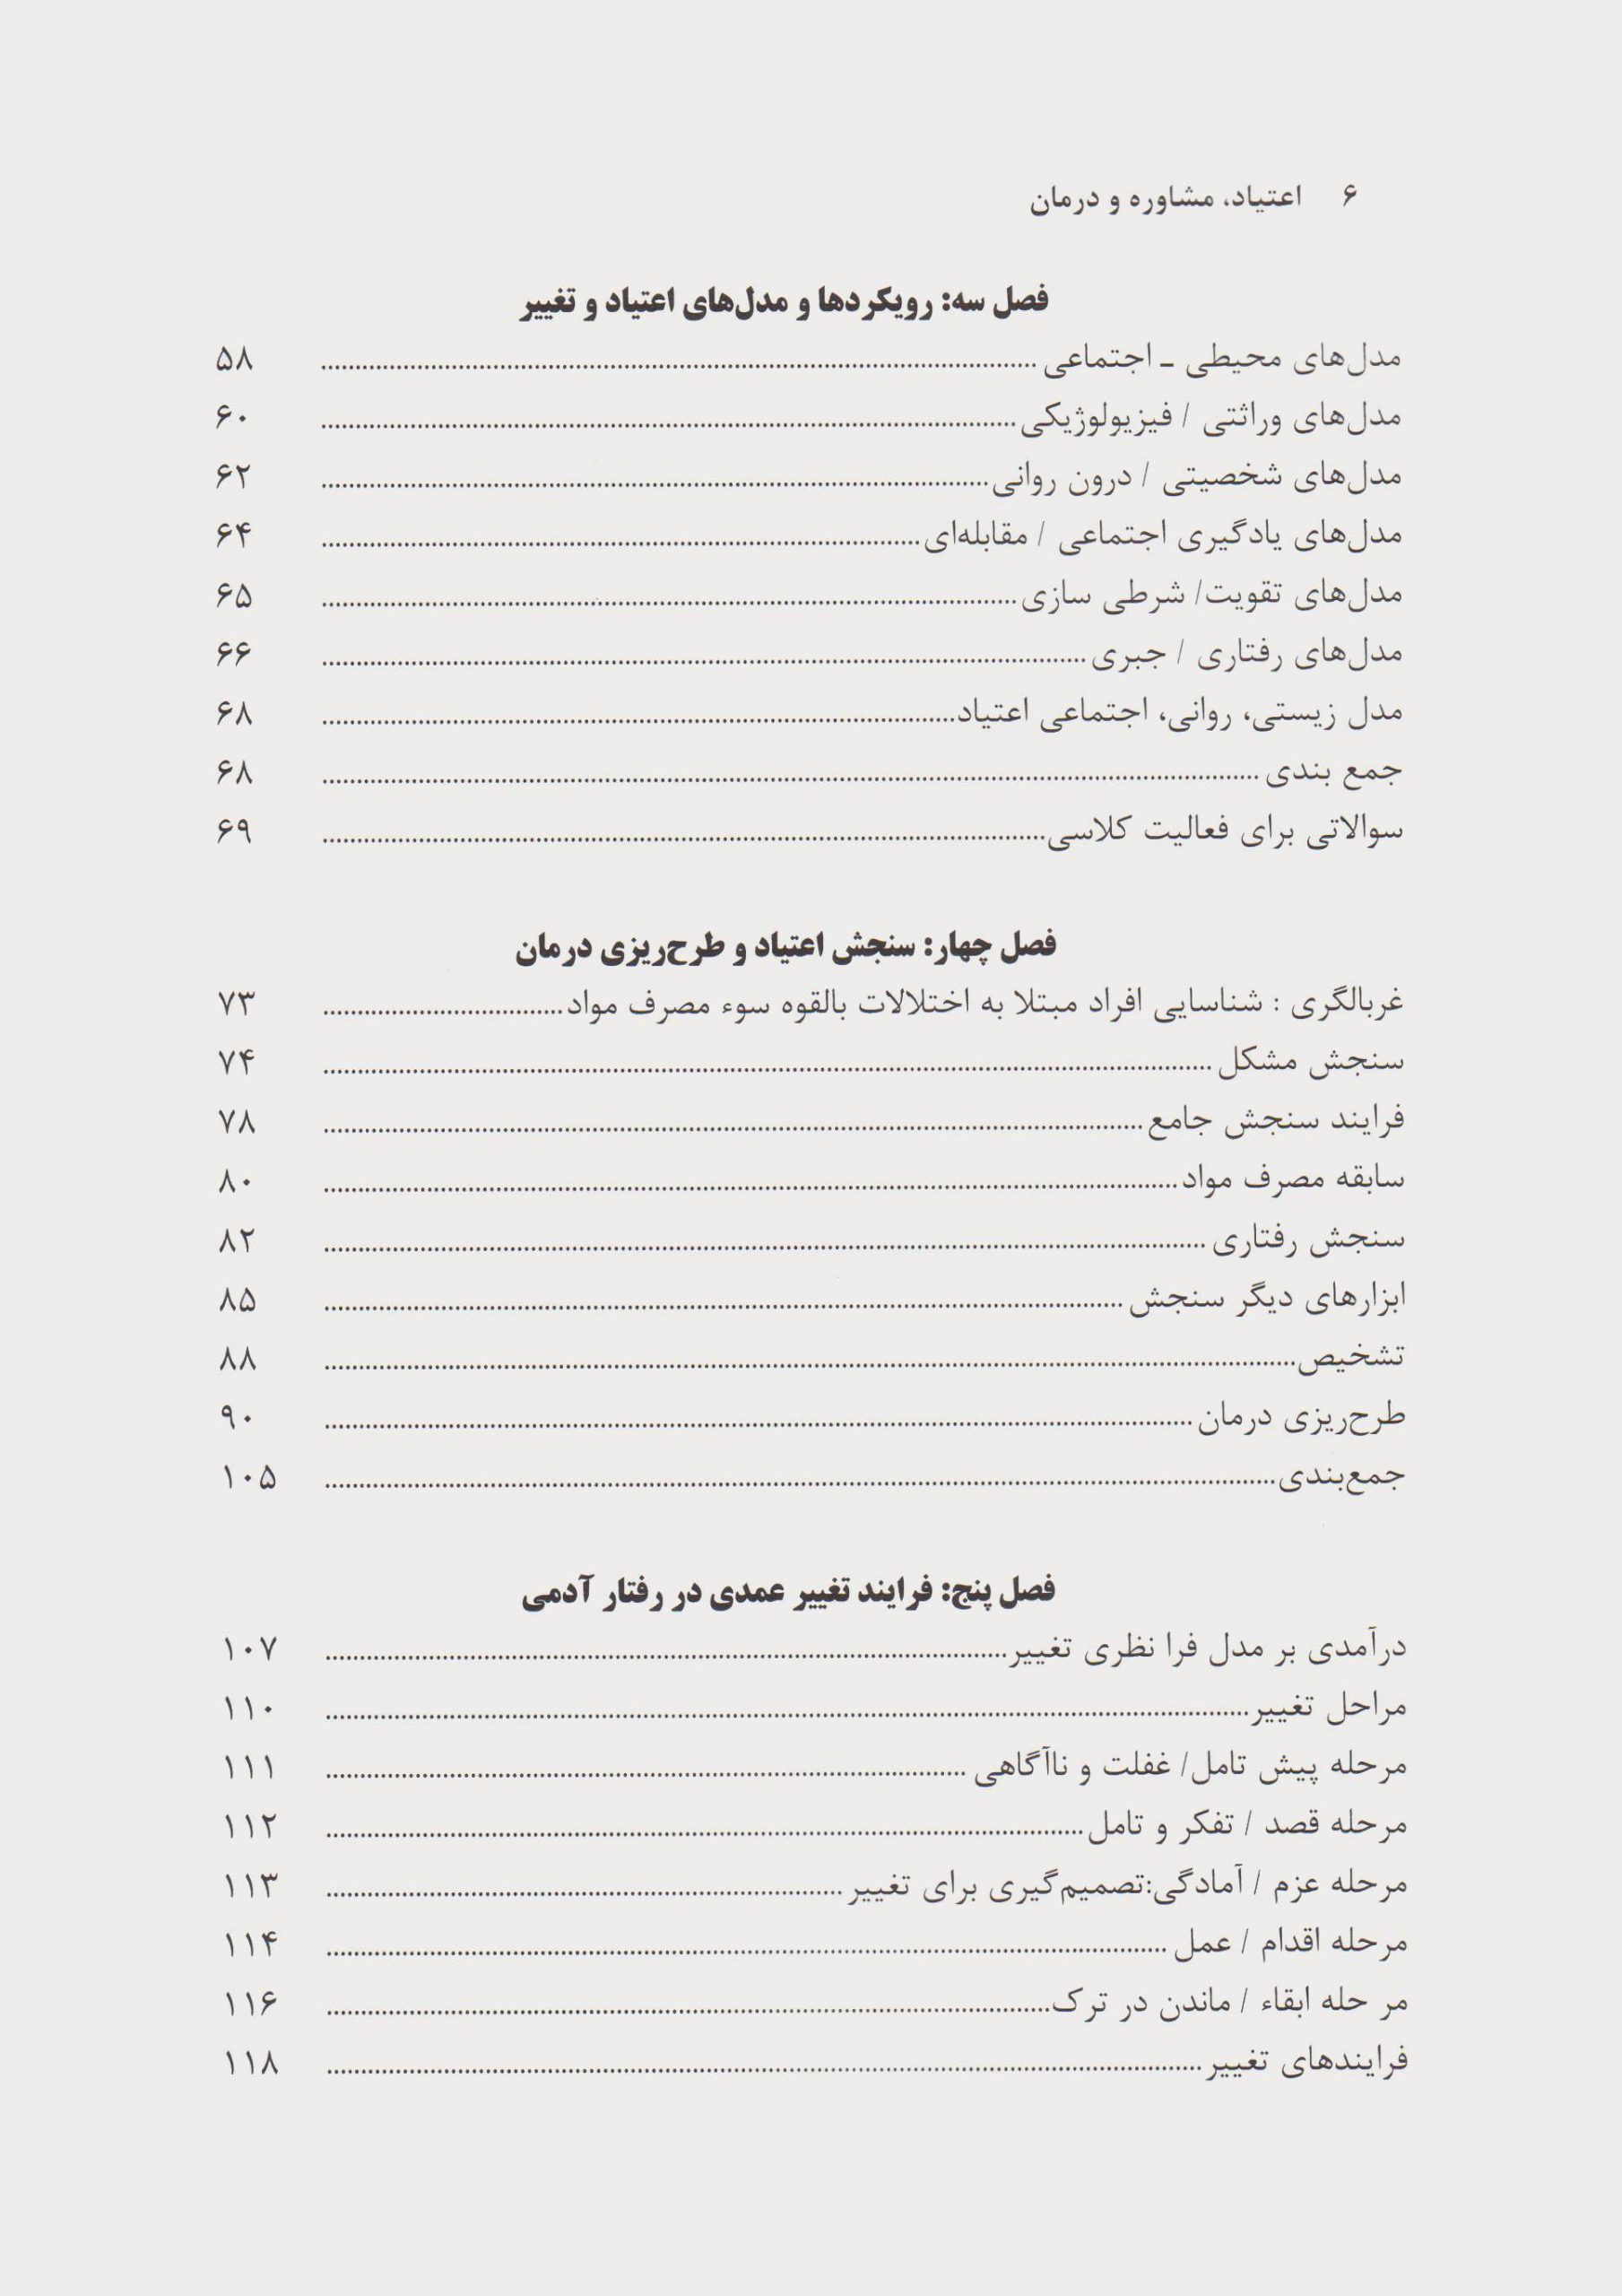 ۶ اعتیاد، مشاوره و درمان
فصل سه: رویکردها و مدل‌های اعتیاد و تغییر
مدل‌های محیطی ـ اجتماعی ........ ۵۸
مدل‌های وراثتی / فیزیولوژیکی ........ ۶۰
مدل‌های شخصیتی / درون روانی ........ ۶۲
مدل‌های یادگیری اجتماعی / مقابله‌ای ........ ۶۴
مدل‌های تقویت/ شرطی سازی ........ ۶۵
مدل‌های رفتاری / جبری ........ ۶۶
مدل زیستی، روانی، اجتماعی اعتیاد ........ ۶۸
جمع بندی ........ ۶۸
سوالاتی برای فعالیت کلاسی ........ ۶۹
فصل چهار: سنجش اعتیاد و طرح‌ریزی درمان
غربالگری : شناسایی افراد مبتلا به اختلالات بالقوه سوء مصرف مواد ........ ۷۳
سنجش مشکل ........ ۷۴
فرایند سنجش جامع ........ ۷۸
سابقه مصرف مواد ........ ۸۰
سنجش رفتاری ........ ۸۲
ابزارهای دیگر سنجش ........ ۸۵
تشخیص ........ ۸۸
طرح‌ریزی درمان ........ ۹۰
جمع‌بندی ........ ۱۰۵
فصل پنج: فرایند تغییر عمدی در رفتار آدمی
درآمدی بر مدل فرا نظری تغییر ........ ۱۰۷
مراحل تغییر ........ ۱۱۰
مرحله پیش تامل/ غفلت و ناآگاهی ........ ۱۱۱
مرحله قصد / تفکر و تامل ........ ۱۱۲
مرحله عزم / آمادگی:تصمیم‌گیری برای تغییر ........ ۱۱۳
مرحله اقدام / عمل ........ ۱۱۴
مر حله ابقاء / ماندن در ترک ........ ۱۱۶
فرایندهای تغییر ........ ۱۱۸